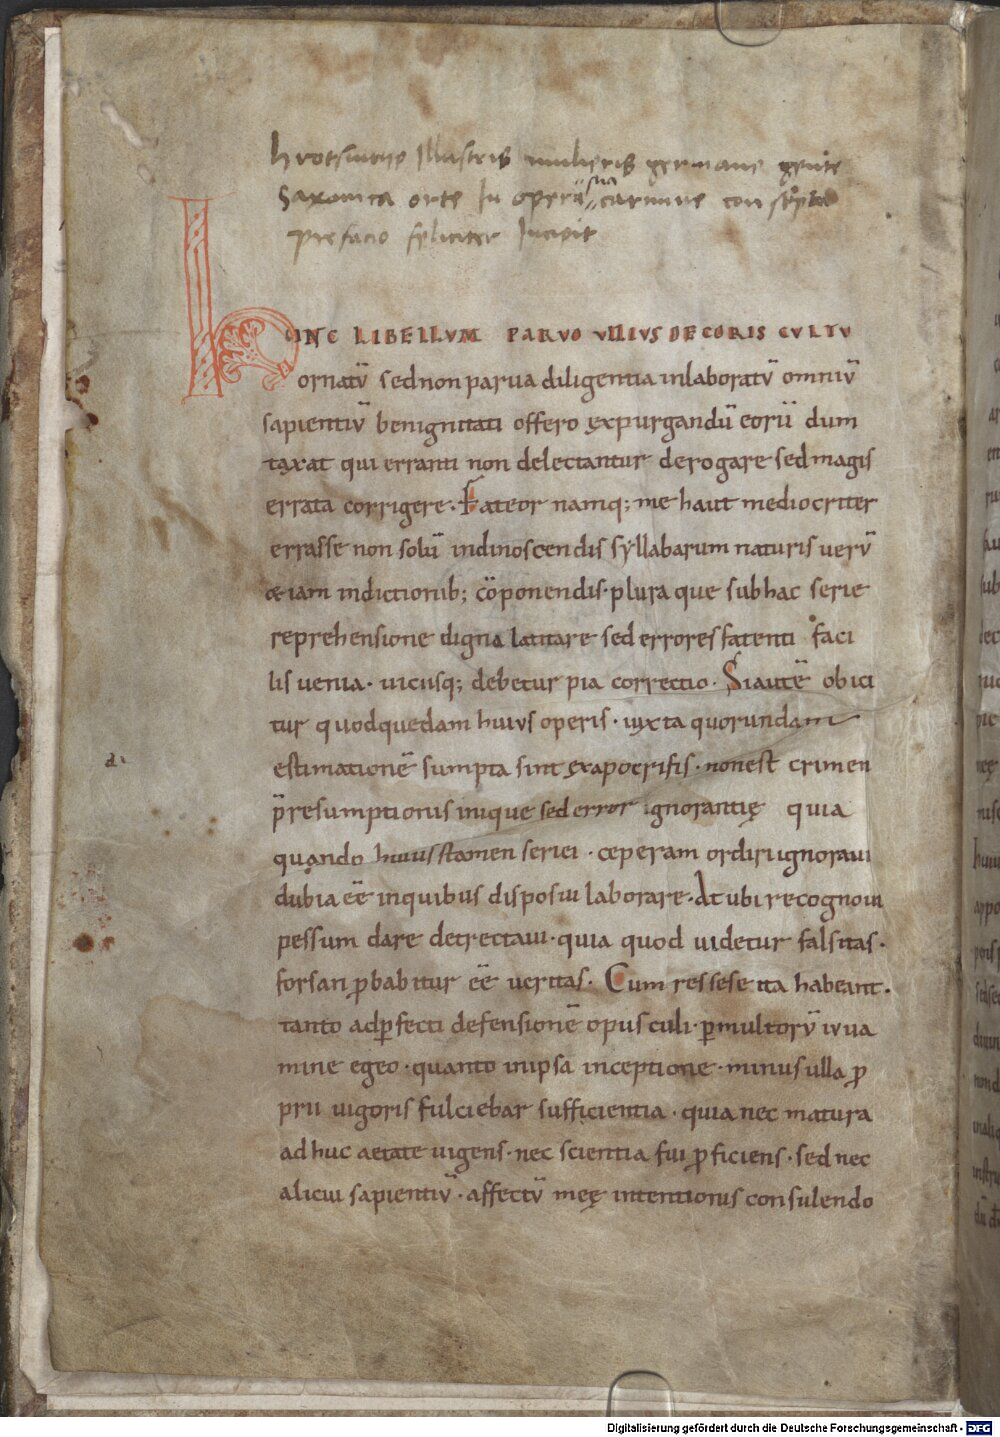 hrotsuitȩ Illustris mulieris germane gente
Saxonica orte In operū sua carmine conscripta
prefacio fęliciter Incipit
hUNC LIBELLVM PARVO VLLIUS DECORIS CVLTV
ornatū sed non parua diligentia inlaboratū omniū
sapientiū benignitati offero expurgandū eorū dum
taxat qui erranti non delectantur derogare sed magis
errata corrigere. Fateor namq; me haut mediocriter
errasse non solū in dinoscendis syllabarum naturis uerū
etiam in dictionib; cōponendis. plura que sub hac serie
reprehensione digna latitare sed errores fatenti faci
lis uenia. uiciisq; debetur pia correctio. Si autē obici
tur quod quedam huius operis. iuxta quorundam
estimationē sumpta sint ex apocrifis. non est crimen
p̄resumptionis inique sed error ignorantię quia
quando huius stamen seriei. ceperam ordiri ignoraui
dubia eē in quibus disposui laborare. At ubi recognoui
pessum dare detrectaui. quia quod uidetur falsitas.
forsan ꝓbabitur eē ueritas. Cum res sese ita habeant.
tanto ad ꝑfecti defensionē opusculi. ꝑ multorū iuua
mine egeo. quanto in ipsa inceptione. minus ulla ꝓ
prii uigoris fulciebar sufficientia. quia nec matura
adhuc aetate uigens. nec scientia fui ꝓficiens. sed nec
alicui sapientiū. affectū meę intentionis consulendo
d.
Digitalisierung gefördert durch die Deutsche Forschungsgemeinschaft - DFG